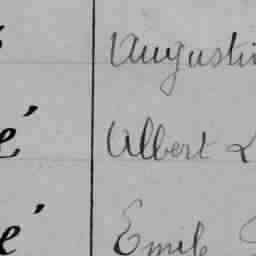 Augustin
é Albert L
é Emile